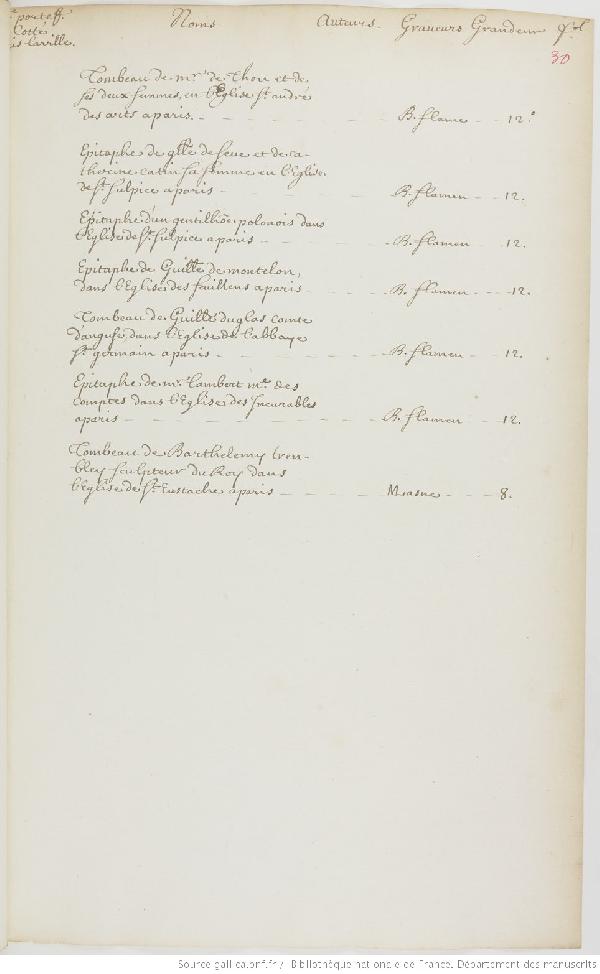 porteff. Noms. Auteurs. Graueurs Grandeur
Cotté
la ville.
30
Tombeau de mr. de Thou et de
ses deux femmes, en l'Eglise st. andré
des arts a paris. B. flame 12.
Epitaphe de glle de seue et de ca-
therine catin sa femme en l'Eglise
de st. sulpice a paris B. flamen 12.
Epitaphe d'un gentilhōe polonois dans
l'Eglise de st. sulpice a paris B. flamen 12.
Epitaphe de Guille de montelon,
dans l'Eglise des feuillens a paris B. flamen 12.
Tombeau de Guille duglas comte
d'anguse, dans l'Eglise de l'abbaye
st. germain a paris B. flamen 12.
Epitaphe de mr. lambert me. des
comptes dans l'Eglise des Incurables
a paris B. flamen 12.
Tombeau de Barthelemy trem-
bley sculpteur du Roy dans
l'Eglise de st. Eustache a paris Masne 8.
Source gallica.bnf.fr / Bibliothèque nationale de France. Département des manuscrits